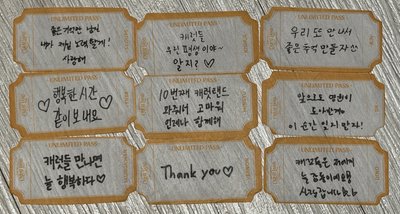 UNLIMITED PASS
좋은 기억만 남게
내가 노력할게!
사랑해
UNLIMITED PASS
캐럿들
우린 평생이야~
알지? ♡
UNLIMITED PASS
우리 또 만나서
좋은 추억 만들자
UNLIMITED PASS
행복한 시간
같이 보내요
UNLIMITED PASS
10번째 캐럿랜드
와줘서 고마워
언제나 함께해
UNLIMITED PASS
앞으로도 영원히
이 순간 잊지 말자!
UNLIMITED PASS
캐럿들 만나면
늘 행복하다♡
UNLIMITED PASS
Thank you♡
UNLIMITED PASS
저에게
늘
사랑합니다